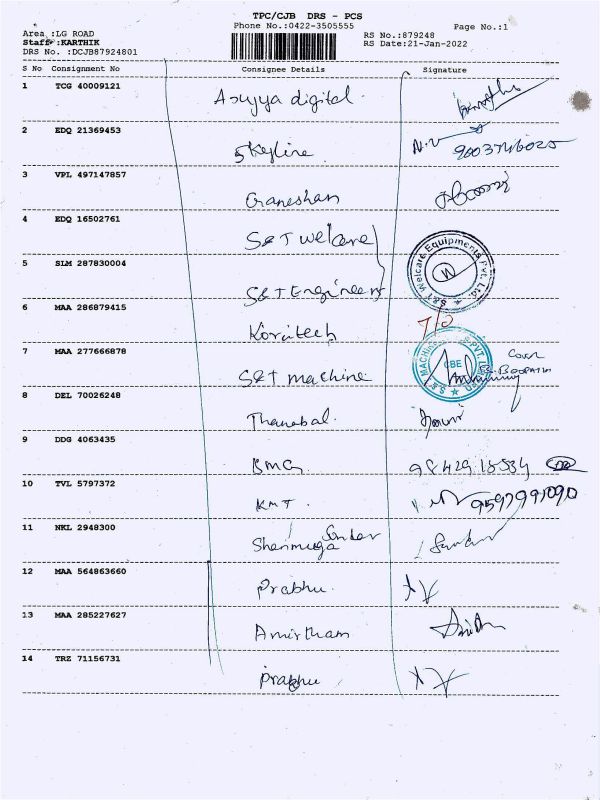 TPC/CJB DRS - PCS
Phone No.:0422-3505555
Page No.:1
Area :LG ROAD
Staff :KARTHIK
DRS No. :DCJB87924801
RS No.:879248
RS Date:21-Jan-2022
S No Consignment No Consignee Details Signature
1 TCG 40009121 digital
2 EDQ 21369453 Skyline N.V 9603746025
3 VPL 497147857 Ganeshan
4 EDQ 16502761 S&T Welcare
S&T Welcare Equipments Pvt. Ltd.
5 SLM 287830004 S&T Engineers
6 MAA 286879415
7 MAA 277666878 S&T machine
CBE
8 DEL 70026248 Thanabal
9 DDG 4063435 BMG 98429 18534
10 TVL 5797372 KMT. 9597991090
11 NKL 2948300 Shanmuga Sundar
12 MAA 564863660 Prabhu.
13 MAA 285227627 Amirtham
14 TRZ 71156731 Prabhu